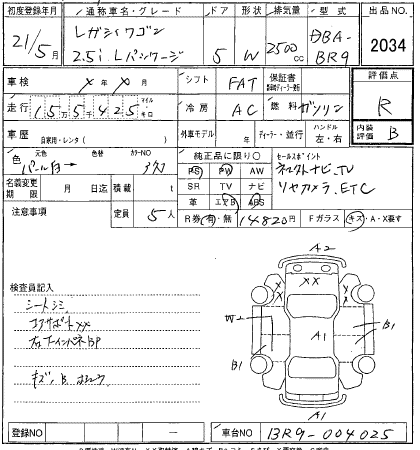 初度登録年月 通称車名・グレード ドア 形状 排気量 型式 出品NO.
21/5月 レガシィワゴン 2.5i Lパッケージ 5 W 2500cc DBA-BR9 2034
車検 × 年 × 月 シフト FAT 保証書 評価点
走行 15万5千425 マイル キロ 冷房 AC 燃料 ガソリン R
車歴 自家用・レンタ( ) 外車モデル 年 ディーラー・並行 ハンドル 左・右 内装評価 B
色 元色 パール白 色替 カラーNO 37J 純正品に限り○ セールスポイント
PS PW AW ナビ.TV
名義変更期限 月 日迄 積載 t SR TV ナビ リヤカメラ.ETC
革 エアB ABS
注意事項 定員 5人 R券 有・無 14820円 Fガラス キズ・A・X要す
A2
検査員記入 XX
シートシミ
コアサポートXX W
A1 B1
B1
キズ.B
A1
登録NO ー 車台NO BR9-004025